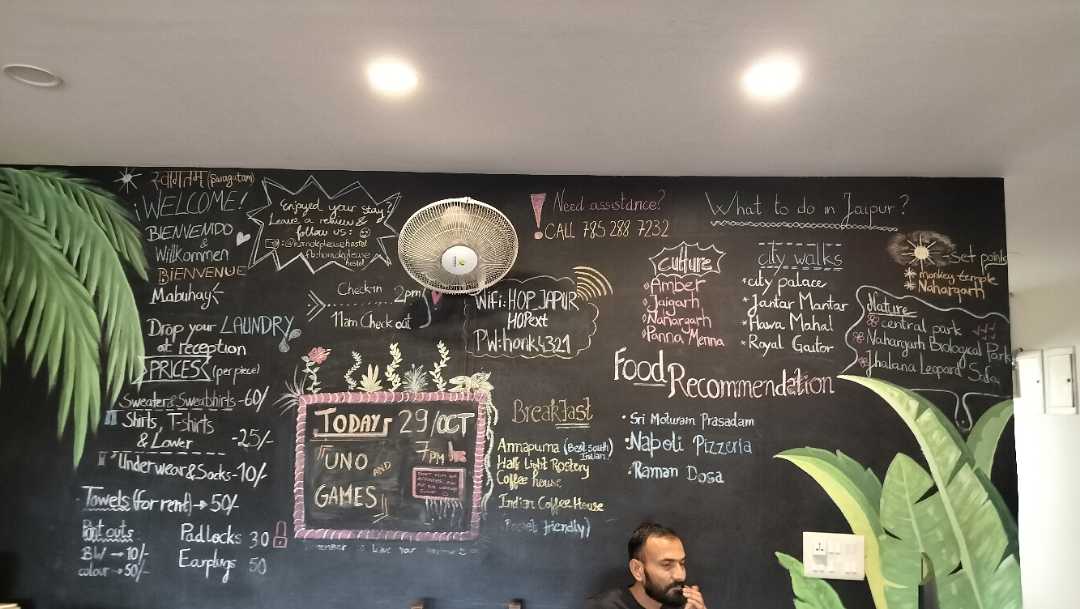 स्वागतम (Swagatam)
¡WELCOME!
BIENVENIDO
&
Willkommen
BIENVENUE
Mabuhay
Drop your LAUNDRY
at reception
PRICES (per piece)
Sweaters & Sweatshirts - 60/
Shirts, T-shirts
& Lower -25/-
Underwear & Socks - 10/-
Towels (for rent) → 50/-
Print outs
BW → 10/-
colour → 50/-
Padlocks 30
Earplugs 50
Enjoyed your stay?
Leave a review &
follow us:
hostel
Check in 2pm
11am Check out
TODAY 29/OCT
7PM
UNO AND
GAMES
WiFi: HOP JAPUR
HOPext
PW: honk4321
Need assistance?
CALL 785 288 7232
Breakfast
Annapurna (Best south Indian)
Half Light Rostery
Coffee house
Indian Coffee House
friendly)
What to do in Jaipur?
Culture
Amber
Jaigarh
Nahargarh
Panna Menna
city walks
city palace
Jantar Mantar
Hawa Mahal
Royal Gaitor
Set points
monkey temple
Nahargarh
Nature
central park
Nahargarh Biological Park
Jhalana Leopard Safari
Food Recommendation
Sri Moturam Prasadam
Napoli Pizzeria
Raman Dosa